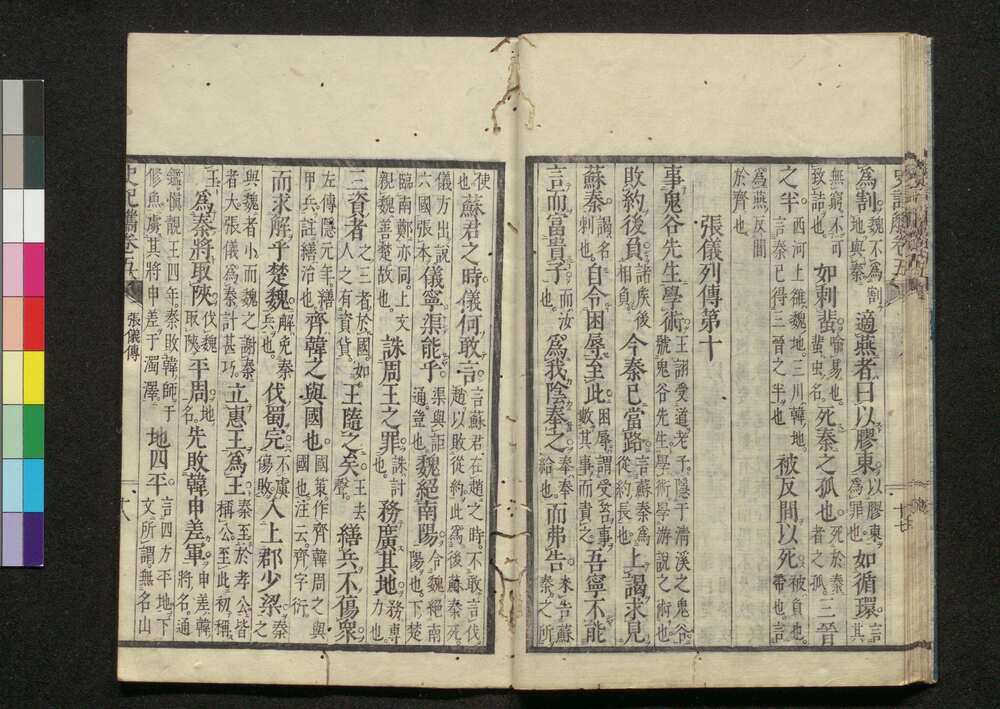 為割魏不為割地與秦適燕者曰以膠東以膠東為罪也如循環言其
無窮不可致詰也如刺蜚喻易也蜚虫名死秦之孤也死於秦者之孤三晉
之半西河上雒魏地三川韓地言秦已得三晉之半也被反間以死被負也帶也言
為燕反間於齊也
張儀列傳第十
事鬼谷先生學術王詡受道老子隱于清溪之鬼谷號鬼谷先生學術學游說之術也
敗約後負諸侯後相負今秦已當路言蘇秦為從約長也上謁求見
蘇秦謁名刺也自令困辱至此困辱謂受吾事數其事而責之吾寧不能
言而富貴子而汝也為我陰奉之奉奉給也而弗告未告蘇秦之所
使也蘇君之時儀何敢言言蘇君在趙之時不敢言伐趙以敗從約此為後蘇秦死
儀方出說六國張本儀寧渠能乎渠與詎通豈也魏絕南陽令魏絕南陽也下楚
臨南鄭亦同上文親魏善楚故也誅周王之罪誅討也務廣其地務專力也
三資者之三者於國如人之有資貨王隨之矣王去聲繕兵不傷衆
左傳隱元年繕甲兵註繕治也齊韓之與國也國策作齊韓周之與國也注云齊字衍
而求解乎楚魏解免秦兵也伐蜀完不虞傷敗入上郡少梁秦之
與魏者小而魏之謝秦者大張儀為秦計甚巧立惠王為王秦至於孝公皆稱公至此初稱
王為秦將取陝伐魏取陝平周地名先敗韓申差軍申差韓將名通
鑑愼靚王四年秦敗韓師于修魚虜其將申差于濁澤地四平言四方平地下文所謂無名山
張儀傳
十八